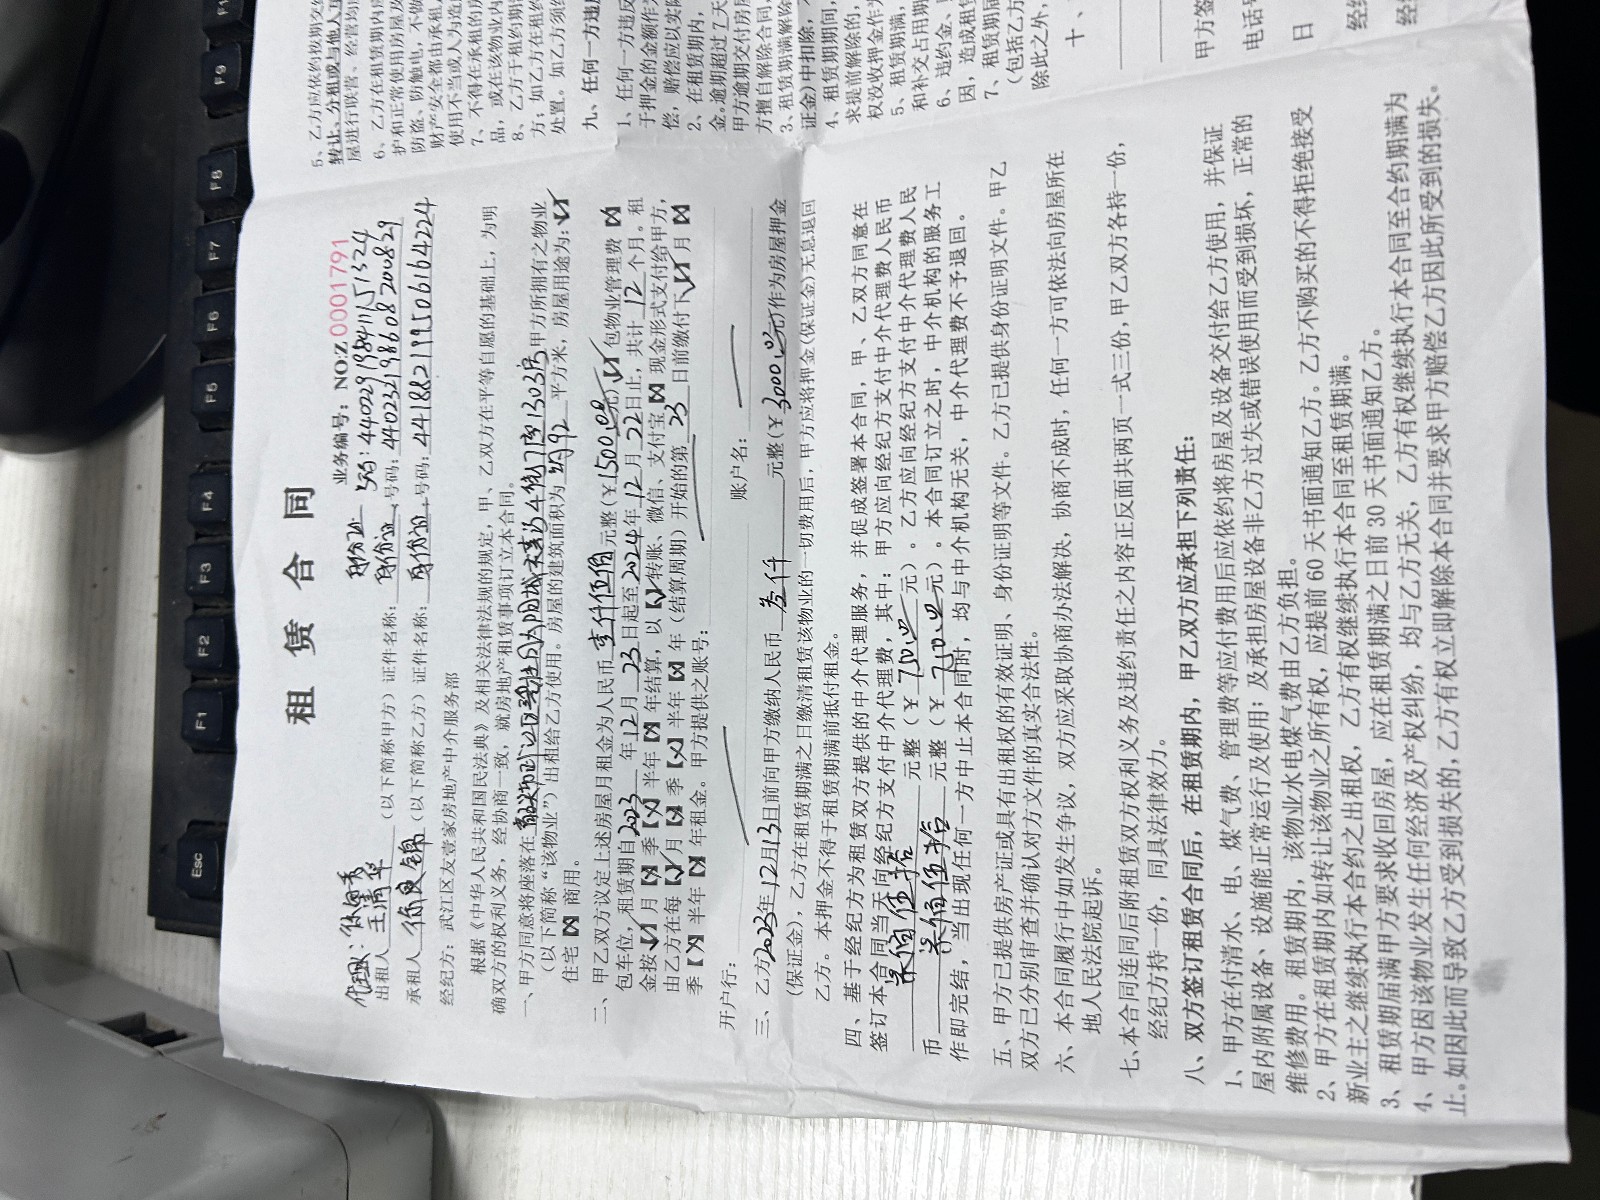 租 赁 合 同
业务编号：NO:Z 0001791
出租人 （以下简称甲方）证件名称：身份证 号码：440232198608200829
承租人 （以下简称乙方）证件名称：身份证 号码：441882199506164224
经纪方：武江区友壹家房地产中介服务部
根据《中华人民共和国民法典》及相关法律法规的规定，甲、乙双方在平等自愿的基础上，为明
确双方的权利义务，经协商一致，就房地产租赁事项订立本合同。
一、甲方同意将座落在 1303房 甲方所拥有之物业
（以下简称“该物业”）出租给乙方使用。房屋的建筑面积为 约92 平方米，房屋用途为：【✓】
住宅【×】商用。
二、甲乙双方议定上述房屋月租金为人民币 壹仟伍佰 元整（￥1500.00元）【✓】包物业管理费【×】
包车位，租赁期自 2023 年 12 月 23 日起至 2024 年 12 月 22 日止，共计 12 个月。租
金按【✓】月【×】季【×】半年【×】年结算，以【✓】转账、微信、支付宝【×】现金形式支付给甲方，
由乙方在每【✓】月【×】季【×】半年【×】年（结算周期）开始的第 23 日前缴付下【✓】月【×】
季【×】半年【×】年租金。甲方提供之账号：
开户行： 账户名：
三、乙方 2023 年 12 月 13 日前向甲方缴纳人民币 叁仟 元整（￥3000.00元）作为房屋押金
（保证金），乙方在租赁期满之日缴清租赁该物业的一切费用后，甲方应将押金（保证金）无息退回
乙方。本押金不得于租赁期满前抵付租金。
四、基于经纪方为租赁双方提供的中介代理服务，并促成签署本合同，甲、乙双方同意在
签订本合同当天向经纪方支付中介代理费，其中：甲方应向经纪方支付中介代理费人民币
柒佰伍拾 元整（￥750.00元）。乙方应向经纪方支付中介代理费人民
币 柒佰伍拾 元整（￥750.00元）。本合同订立之时，中介机构的服务工
作即完结，当出现任何一方中止本合同时，均与中介机构无关，中介代理费不予退回。
五、甲方已提供房产证或具有出租权的有效证明、身份证明等文件。乙方已提供身份证明文件。甲乙
双方已分别审查并确认对方文件的真实合法性。
六、本合同履行中如发生争议，双方应采取协商办法解决，协商不成时，任何一方可依法向房屋所在
地人民法院起诉。
七、本合同连同后附租赁双方权利义务及违约责任之内容正反面共两页一式三份，甲乙双方各持一份，
经纪方持一份，同具法律效力。
八、双方签订租赁合同后，在租赁期内，甲乙双方应承担下列责任：
1、甲方在付清水、电、煤气费、管理费等应付费用后应依约将房屋及设备交付给乙方使用，并保证
屋内附属设备、设施能正常运行及使用；及承担房屋设备非乙方过失或错误使用而受到损坏，正常的
维修费用。租赁期内，该物业水电煤气费由乙方负担。
2、甲方在租赁期内如转让该物业之所有权，应提前 60 天书面通知乙方。乙方不购买的不得拒绝接受
新业主之继续执行本合约之出租权，乙方有权继续执行本合同至租赁期满。
3、租赁期届满甲方要求收回房屋，应在租赁期满之日前 30 天书面通知乙方。
4、甲方因该物业发生任何经济及产权纠纷，均与乙方无关，乙方有权继续执行本合同至合约期满为
止。如因此而导致乙方受到损失的，乙方有权立即解除本合同并要求甲方赔偿乙方因此所受到的损失。
5、乙方应依约按期交
转让、分租或与他人
屋进行联营、经营
6、乙方在租赁期内
护和正常使用房屋及
防盗、防触电，不
财产安全都由承租
使用不当或人为造
7、不得在承租的房
品，或在该物业内
8、乙方于租约期
方；如乙方在租约
处置。如乙方须
九、任何一方违
1、任何一方违反
于押金的金额作为
偿，赔偿应以实际
2、在租赁期内，
金。逾期超过七天
甲方逾期交付房屋
方擅自解除合同，
3、租赁期满解除
证金）中扣除，
4、租赁期期间，
求提前解除的，
权没收押金作为
5、租赁期满，
和补交占用期
6、违约金、
因，造成租赁
7、租赁期届
（包括乙方
除此之外，
十、
甲方签
电话号
日
经纪
经
Esc
F1
F2
F3
F4
F5
F6
F7
F8
F9